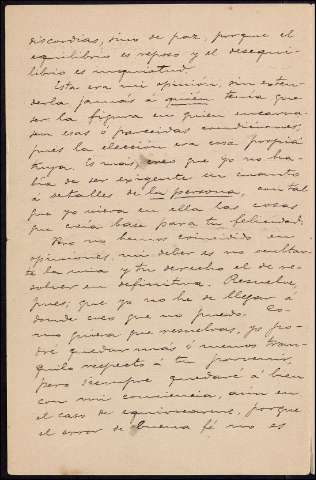 discordias, sino de paz, porque el
equilibrio es reposo y el desequi-
librio es inquietud.
Esta era mi opinión, sin exten-
derla jamás á quién tenía que
ser la figura en quien encarna-
sen esas ó parecidas condiciones,
pues la elección era cosa propia
tuya. Es más, creo que yo no ha-
bía de ser exigente en cuanto
á detalles de la persona, con tal
que yo viera en ella las cosas
que creía base para tu felicidad.
Pero no hemos coincidido en
opiniones, mi deber es no ocultar-
te la mía y tu derecho el de re-
solver en definitiva. Resuelve,
pues; que yo no he de llegar á
donde creo que no puedo. Co-
mo quiera que resuelvas, yo po-
dré quedar más ó menos tran-
quilo respecto á tu porvenir,
pero siempre quedaré á bien
con mi conciencia, aún en
el caso de equivocarme, porque
el error de buena fé no es